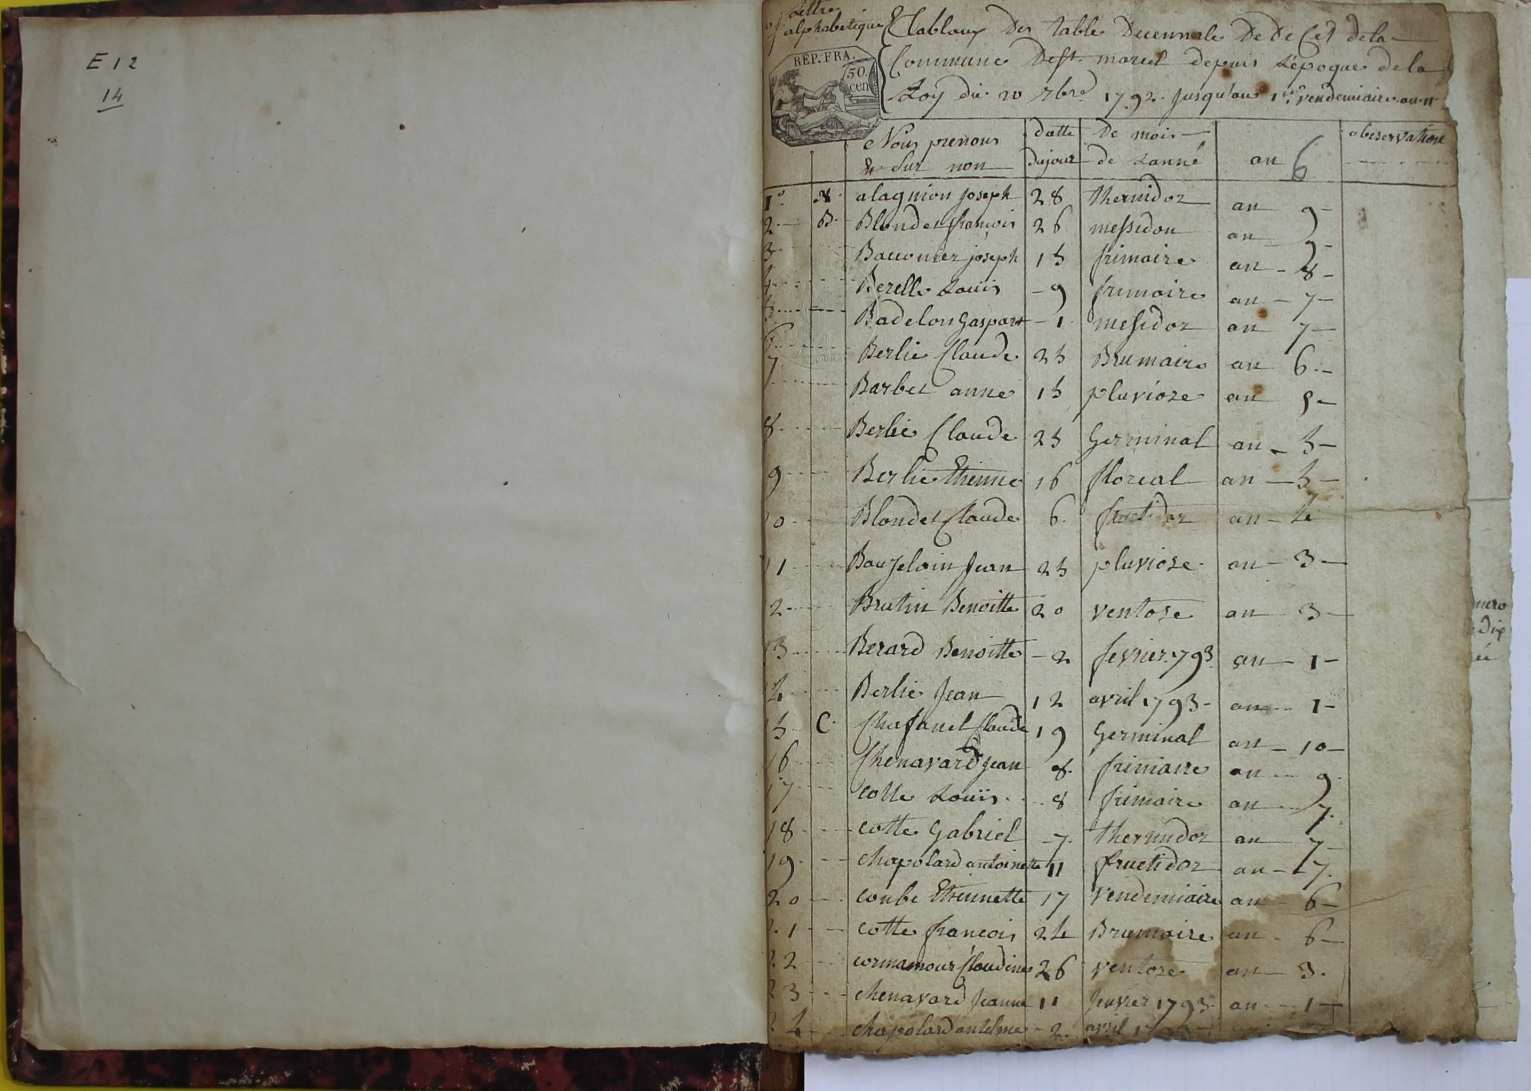 E 12
14
Lettre
alphabetique
Etablaux Des table Decennale De De Cet dela
Commune Dest. marcel depuis L'epoque de la
Loy du 20 7bre 1792 jusqu'au 1er vendemiaire an 11
REP. FRA.
50.
cen
Nous prenons datte De mois observations
& Sur non dujour de Lanné an 6
1° A. alagnion joseph 28 thermidor an 9
2 B. Blondet francois 26 messidou an 9
3 Bacconier joseph 15 frimaire an 8
4 Berelle Louis 9 frimaire an 7
5 Badelon Gaspart 1 messidor an 7
6 Berlie Claude 25 Brumaire an 6
7 Barbet anne 15 pluvioze an 5
8 Berlie Claude 25 Germinal an 5
9 Berlie Etienne 16 floreal an 5
10 Blondet Claude 6 fructidor an 4
11 Baujelain Jean 25 pluviose an 3
12 Brutin Benoitte 20 ventose an 3
13 Berard Benoitte 2 fevrier 1793 an 1
14 Berlie Jean 12 avril 1793 an 1
15 C. Chafanel Claude 19 Germinal an 10
16 Chenavard Jean 8 frimaire an 9
17 Cotte Louis 8 frimaire an 7
18 cotte Gabriel 7 thermidor an 7
19 chapolard antoinette 11 fructidor an 7
20 coube Etiennette 17 vendemiaire an 6
21 cotte francois 24 Brumaire an 6
22 cormamour Claudine 26 ventose an 3
23 chenavard Jeanne 11 fevrier 1793 an 1
24 chapolard antelme 2 avril